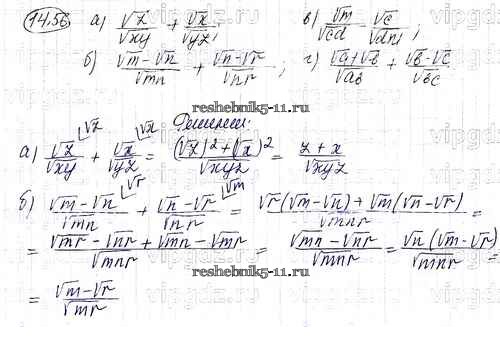 14.56 а) √z/√xy + √x/√yz; в) √m/√cd - √c/√dn;
б) (√m-√n)/√mn + (√n-√r)/√nr; г) (√a+√b)/√ab + (√b-√c)/√bc
reshebnik5-11.ru
Решение:
а) √z/√xy \√z + √x/√yz \√x = ((√z)²+(√x)²)/√xyz = (z+x)/√xyz
б) (√m-√n)/√mn \√r + (√n-√r)/√nr \√m = (√r(√m-√n)+√m(√n-√r))/√mnr =
= (√mr-√nr+√mn-√mr)/√mnr = (√mn-√nr)/√mnr = √n(√m-√r)/√mnr =
= (√m-√r)/√mr
reshebnik5-11.ru